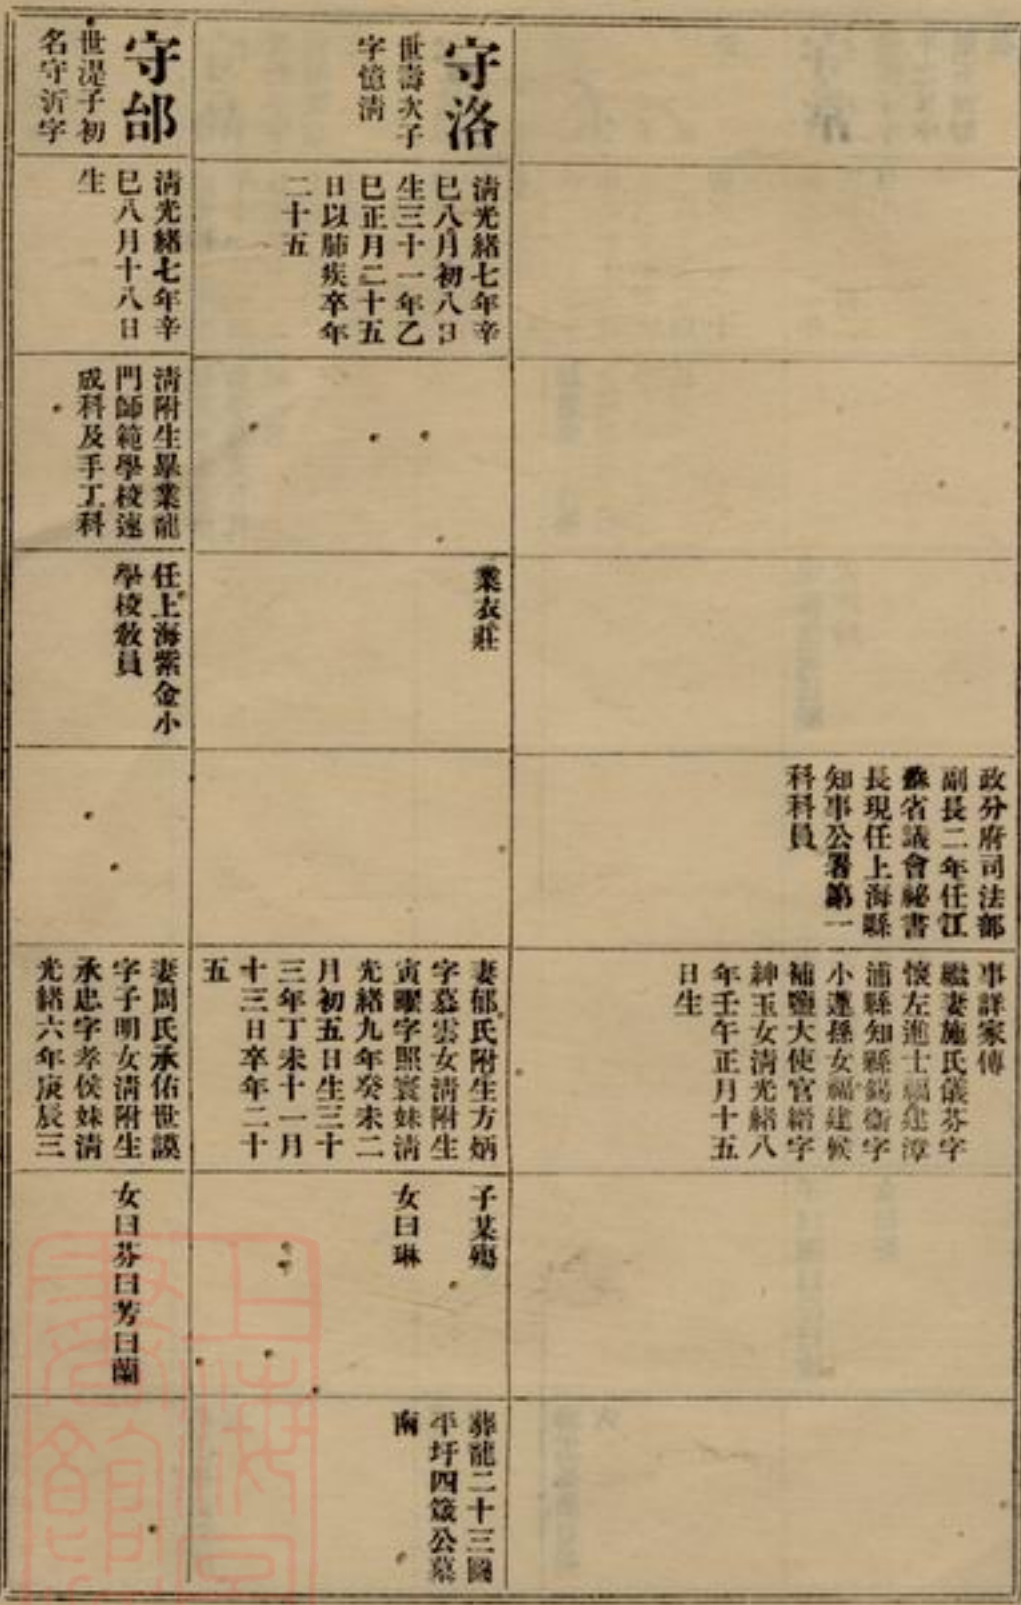 政分府司法部
副長二年任江
蘇省議會祕書
長現任上海縣
知事公署第一
科科員
事詳家傳
繼妻施氏儀芬字
懷左進士福建漳
浦縣知縣錫衞字
小蓮孫女福建候
補鹽大使官縉字
紳玉女清光緒八
年壬午正月十五
日生
守洛
世壽次子
字憶清
清光緒七年辛
巳八月初八日
生三十一年乙
巳正月二十五
日以肺疾卒年
二十五
業衣莊
妻郁氏附生方炳
字慕雲女清附生
寅曜字照寰妹清
光緒九年癸未二
月初五日生三十
三年丁未十一月
十三日卒年二十
五
子某殤
女曰琳
葬龍二十三圖
平圩四箴公墓
南
守邰
世湜子初
名守沂字
清光緒七年辛
巳八月十八日
生
清附生畢業龍
門師範學校速
成科及手工科
任上海紫金小
學校敎員
妻周氏承佑世謨
字子明女清附生
承忠字孝侯妹清
光緒六年庚辰三
女曰芬曰芳曰蘭